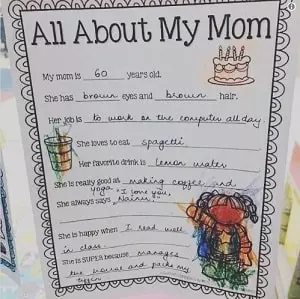 All About My Mom
My mom is 60 years old.
She has brown eyes and brown hair.
Her job is to work on the computer all day.
She loves to eat spagetti.
Her favorite drink is lemon water
She is really good at making coffee and
yoga
She always says "I love you,
Nainu".
She is happy when I read well
in class.
She is SUPER because manages
the house and packs my
tiffin